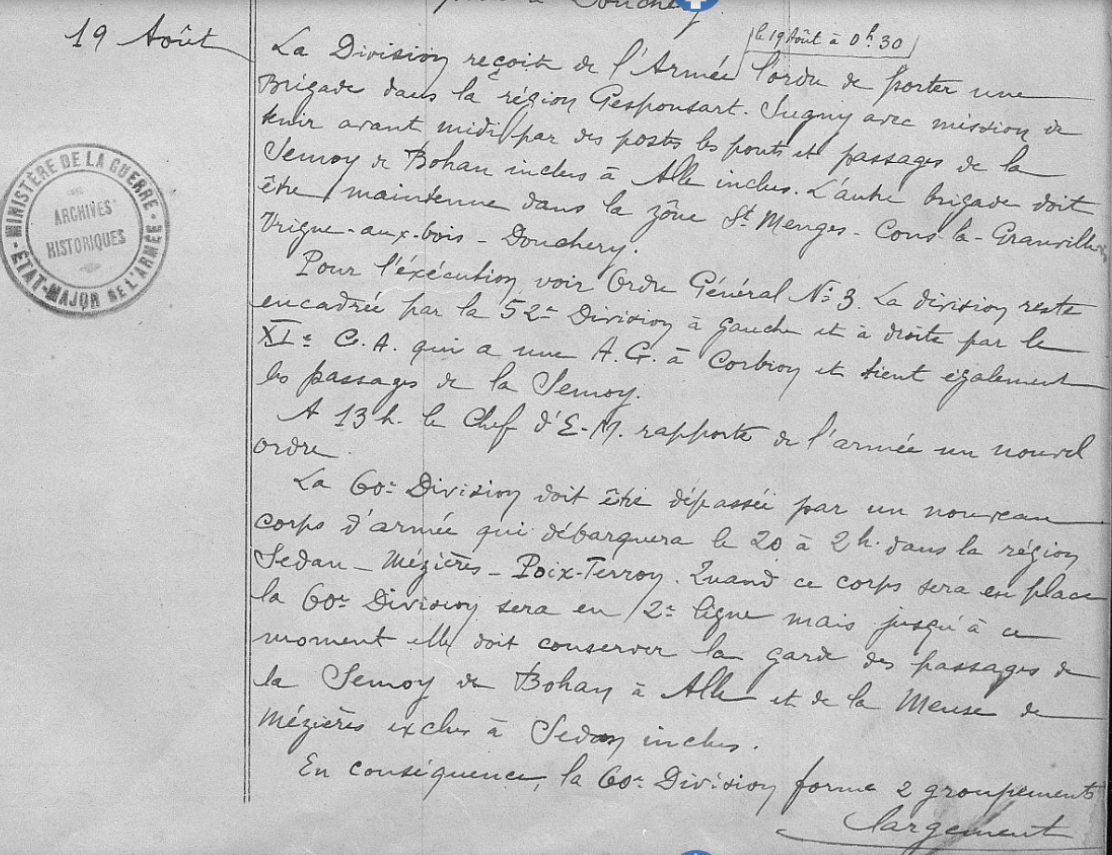 à Donchery
19 Août
le 19 Août à 0h30
La Division reçoit de l'Armée l'ordre de porter une
Brigade dans la région Gesponsart. Sugny avec mission de
tenir avant midi par des postes les ponts et passages de la
Semoy de Bohan inclus à Alle inclus. L'autre brigade doit
être maintenue dans la zône St Menges - Cons-la-Granville
Vrigne-aux-bois - Donchery.
Pour l'éxécution, voir Ordre Général No 3. La division reste
encadrée par la 52e Division à gauche et à droite par le
XIe C.A. qui a une A.G. à Corbion et tient également
les passages de la Semoy.
A 13h. le Chef d'E-M. rapporte de l'armée un nouvel
ordre.
La 60e Division doit être dépassée par un nouveau
corps d'armée qui débarquera le 20 à 2h. dans la région
Sedan - Mézières - Poix-Terron. Quand ce corps sera en place
la 60e Division sera en 2e ligne mais jusqu'à ce
moment elle doit conserver la garde des passages de
la Semoy de Bohan à Alle et de la Meuse de
Mézières exclus à Sedan inclus.
En conséquence, la 60e Division forme 2 groupements
largement
MINISTÈRE DE LA GUERRE
ARCHIVES
HISTORIQUES
ETAT-MAJOR DE L'ARMÉE